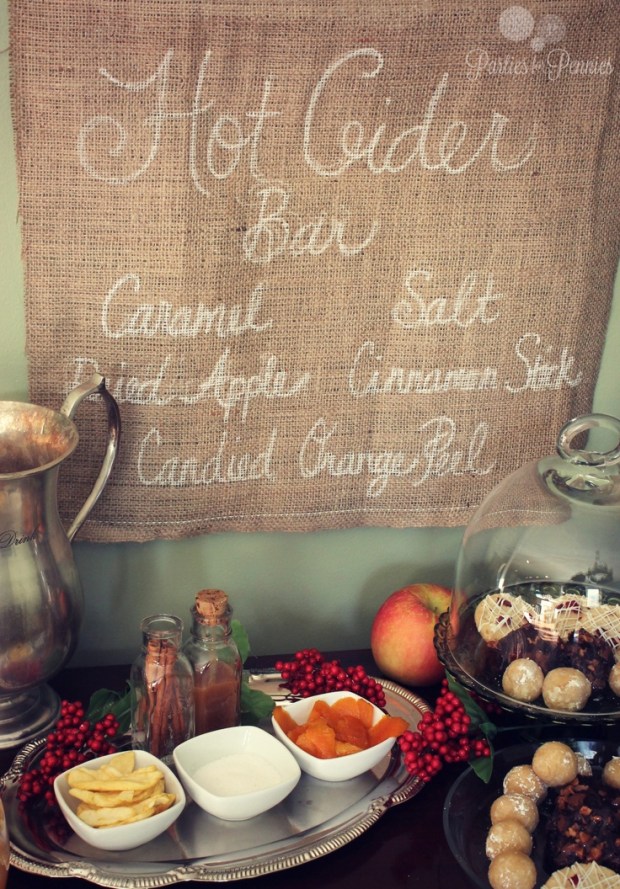 Parties for Pennies
Hot Cider
Bar
Caramel Salt
Dried Apple Cinnamon Stick
Candied Orange Peel
Drink